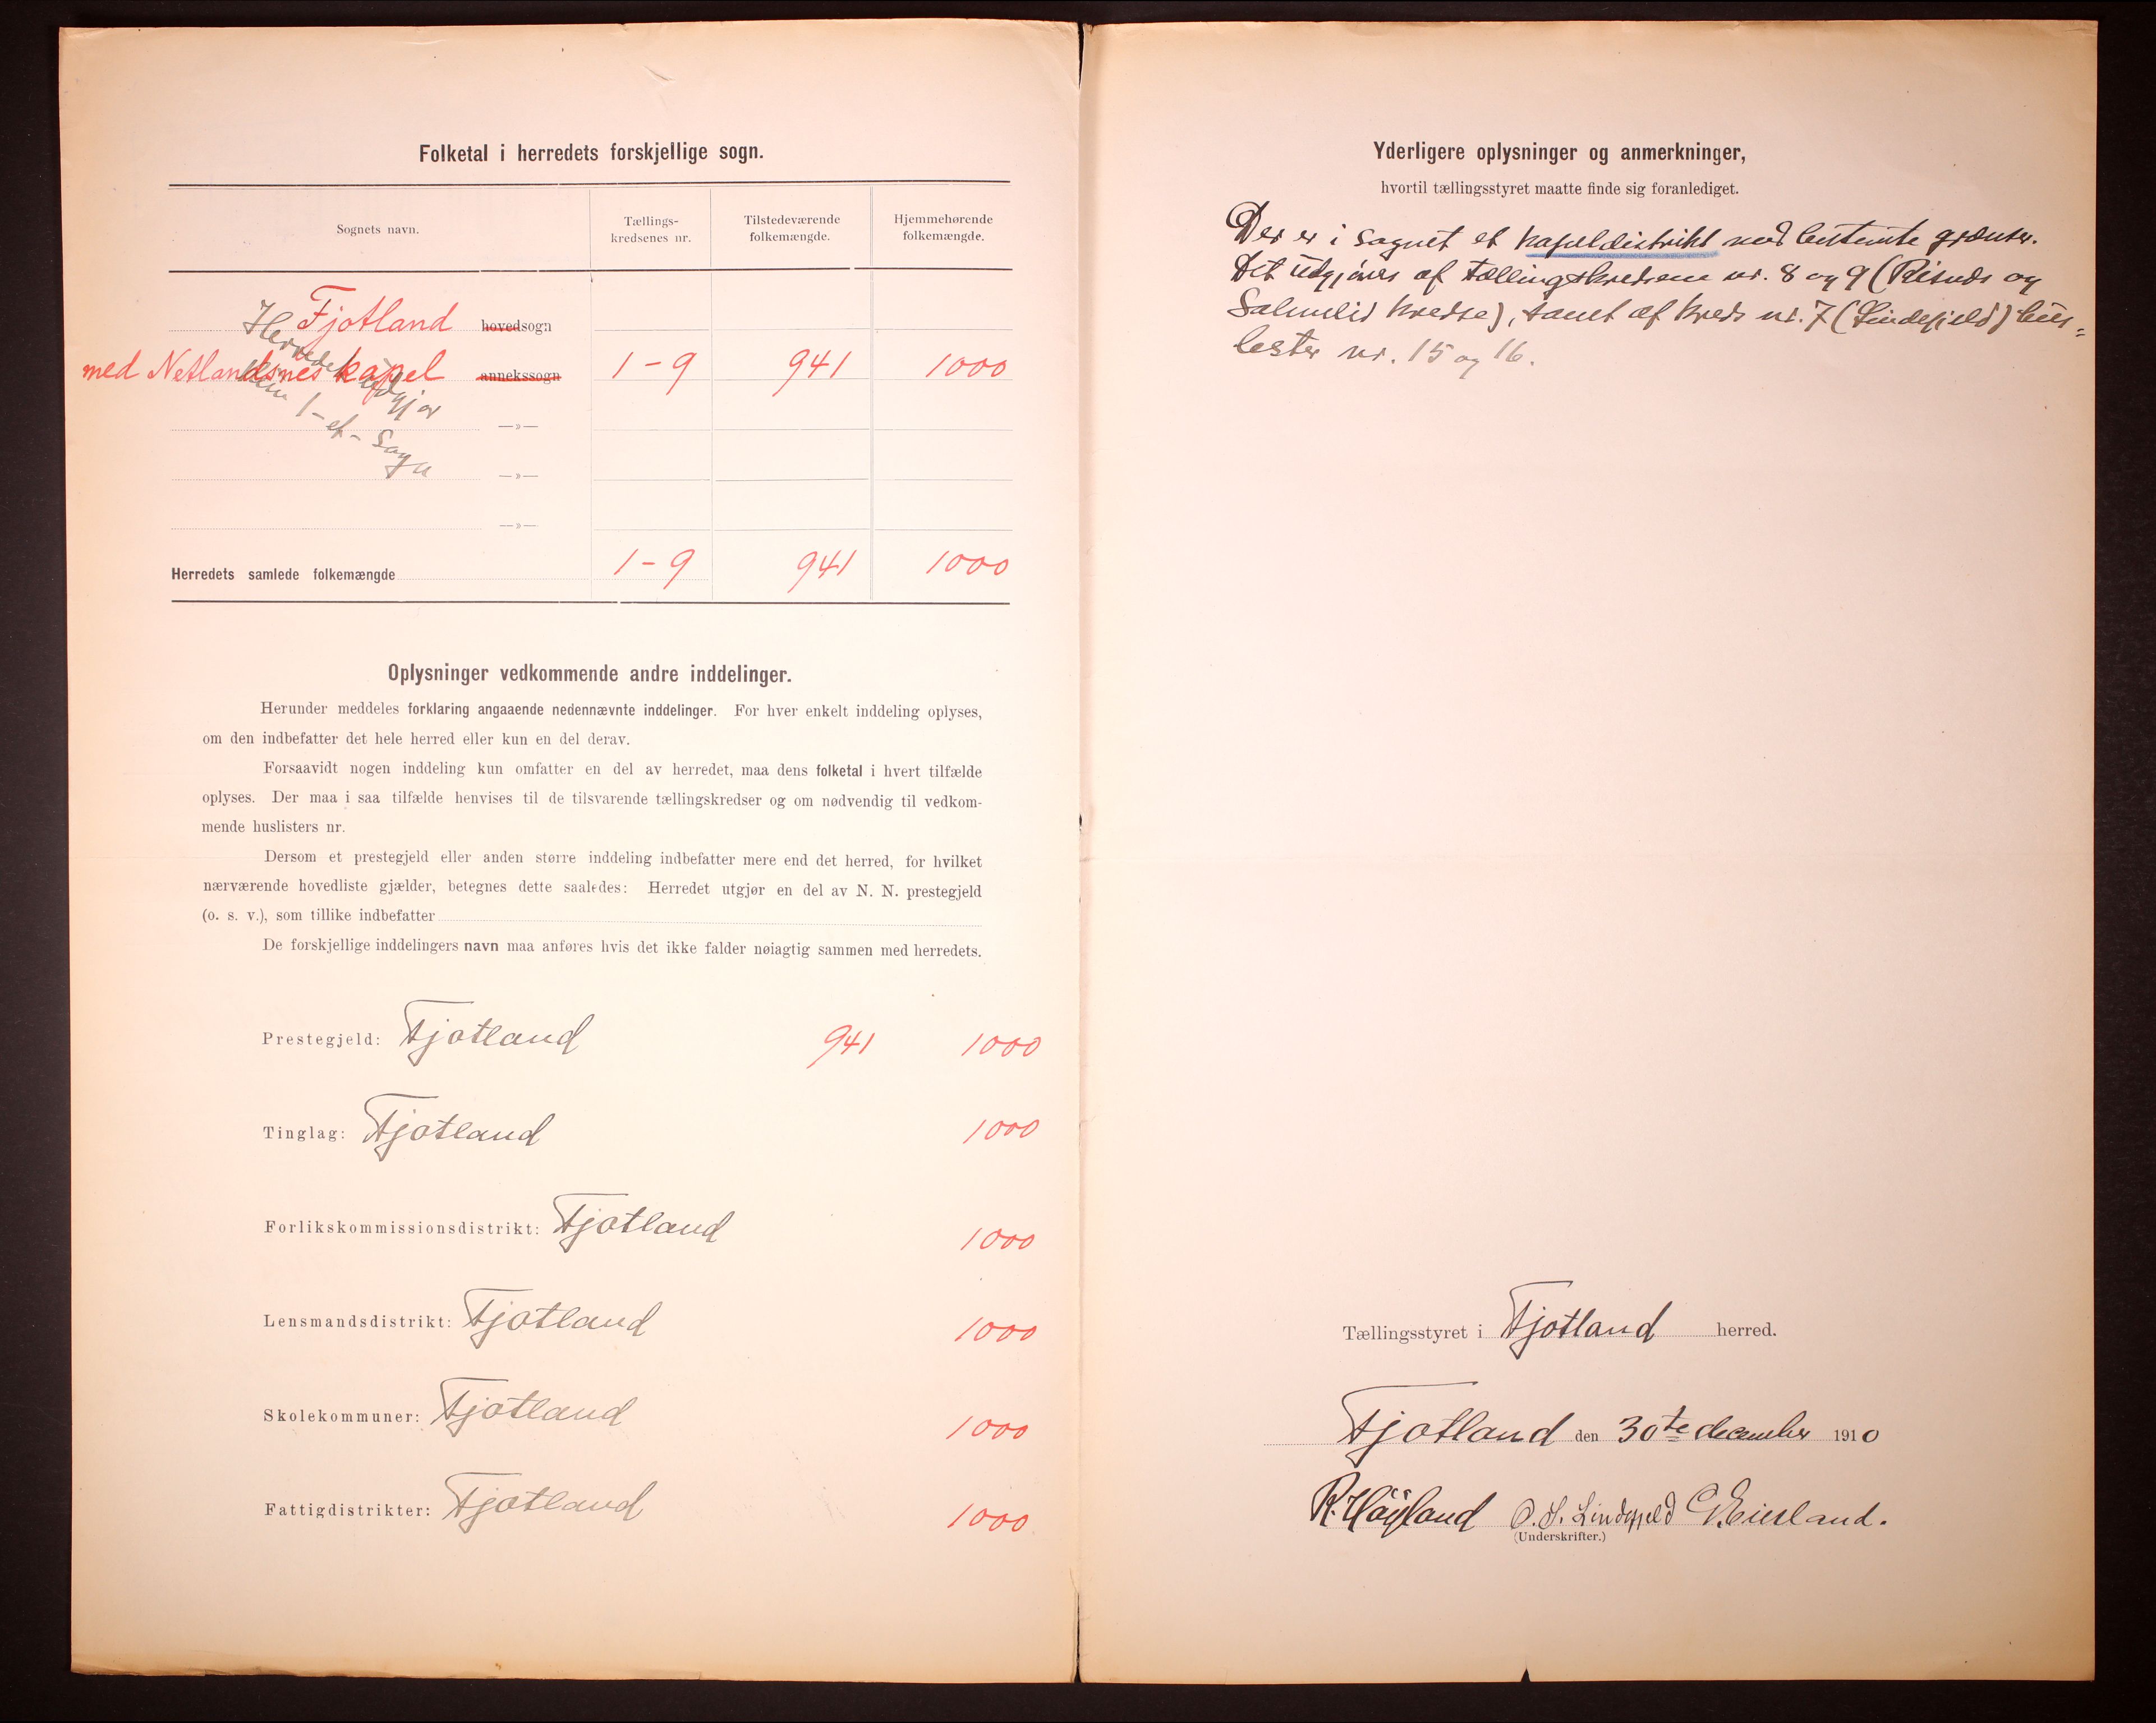 Folketal i herredets forskjellige sogn.
Sognets navn.
Tællings-
kredsenes nr.
Tilstedeværende
folkemængde.
Hjemmehørende
folkemængde.
Fjotland hovedsogn
med Netlandsnes kapel annekssogn 1-9 941 1000
Herredet udgjør
kun 1-et- Sogn
—»—
—»—
—»—
Herredets samlede folkemængde 1-9 941 1000
Oplysninger vedkommende andre inddelinger.
Herunder meddeles forklaring angaaende nedennævnte inddelinger. For hver enkelt inddeling oplyses,
om den indbefatter det hele herred eller kun en del derav.
Forsaavidt nogen inddeling kun omfatter en del av herredet, maa dens folketal i hvert tilfælde
oplyses. Der maa i saa tilfælde henvises til de tilsvarende tællingskredser og om nødvendig til vedkom-
mende huslisters nr.
Dersom et prestegjeld eller anden større inddeling indbefatter mere end det herred, for hvilket
nærværende hovedliste gjælder, betegnes dette saaledes: Herredet utgjør en del av N. N. prestegjeld
(o. s. v.), som tillike indbefatter
De forskjellige inddelingers navn maa anføres hvis det ikke falder nøiagtig sammen med herredets.
Prestegjeld: Fjotland 941 1000
Tinglag: Fjotland 1000
Forlikskommissionsdistrikt: Fjotland 1000
Lensmandsdistrikt: Fjotland 1000
Skolekommuner: Fjotland 1000
Fattigdistrikter: Fjotland 1000
Yderligere oplysninger og anmerkninger,
hvortil tællingsstyret maatte finde sig foranlediget.
Der er i Sognet et kapeldistrikt med bestemte grænser.
Det udgjøres af tællingskredsene nr. 8 og 9 (Risnes og
Salmelid kredse), samt af kreds nr. 7 (Lindefjeld) hus-
lister nr. 15 og 16.
Tællingsstyret i Fjotland herred.
Fjotland den 30te december 1910
R. Høyland O. S. Lindefjeld Eiesland.
(Underskrifter.)